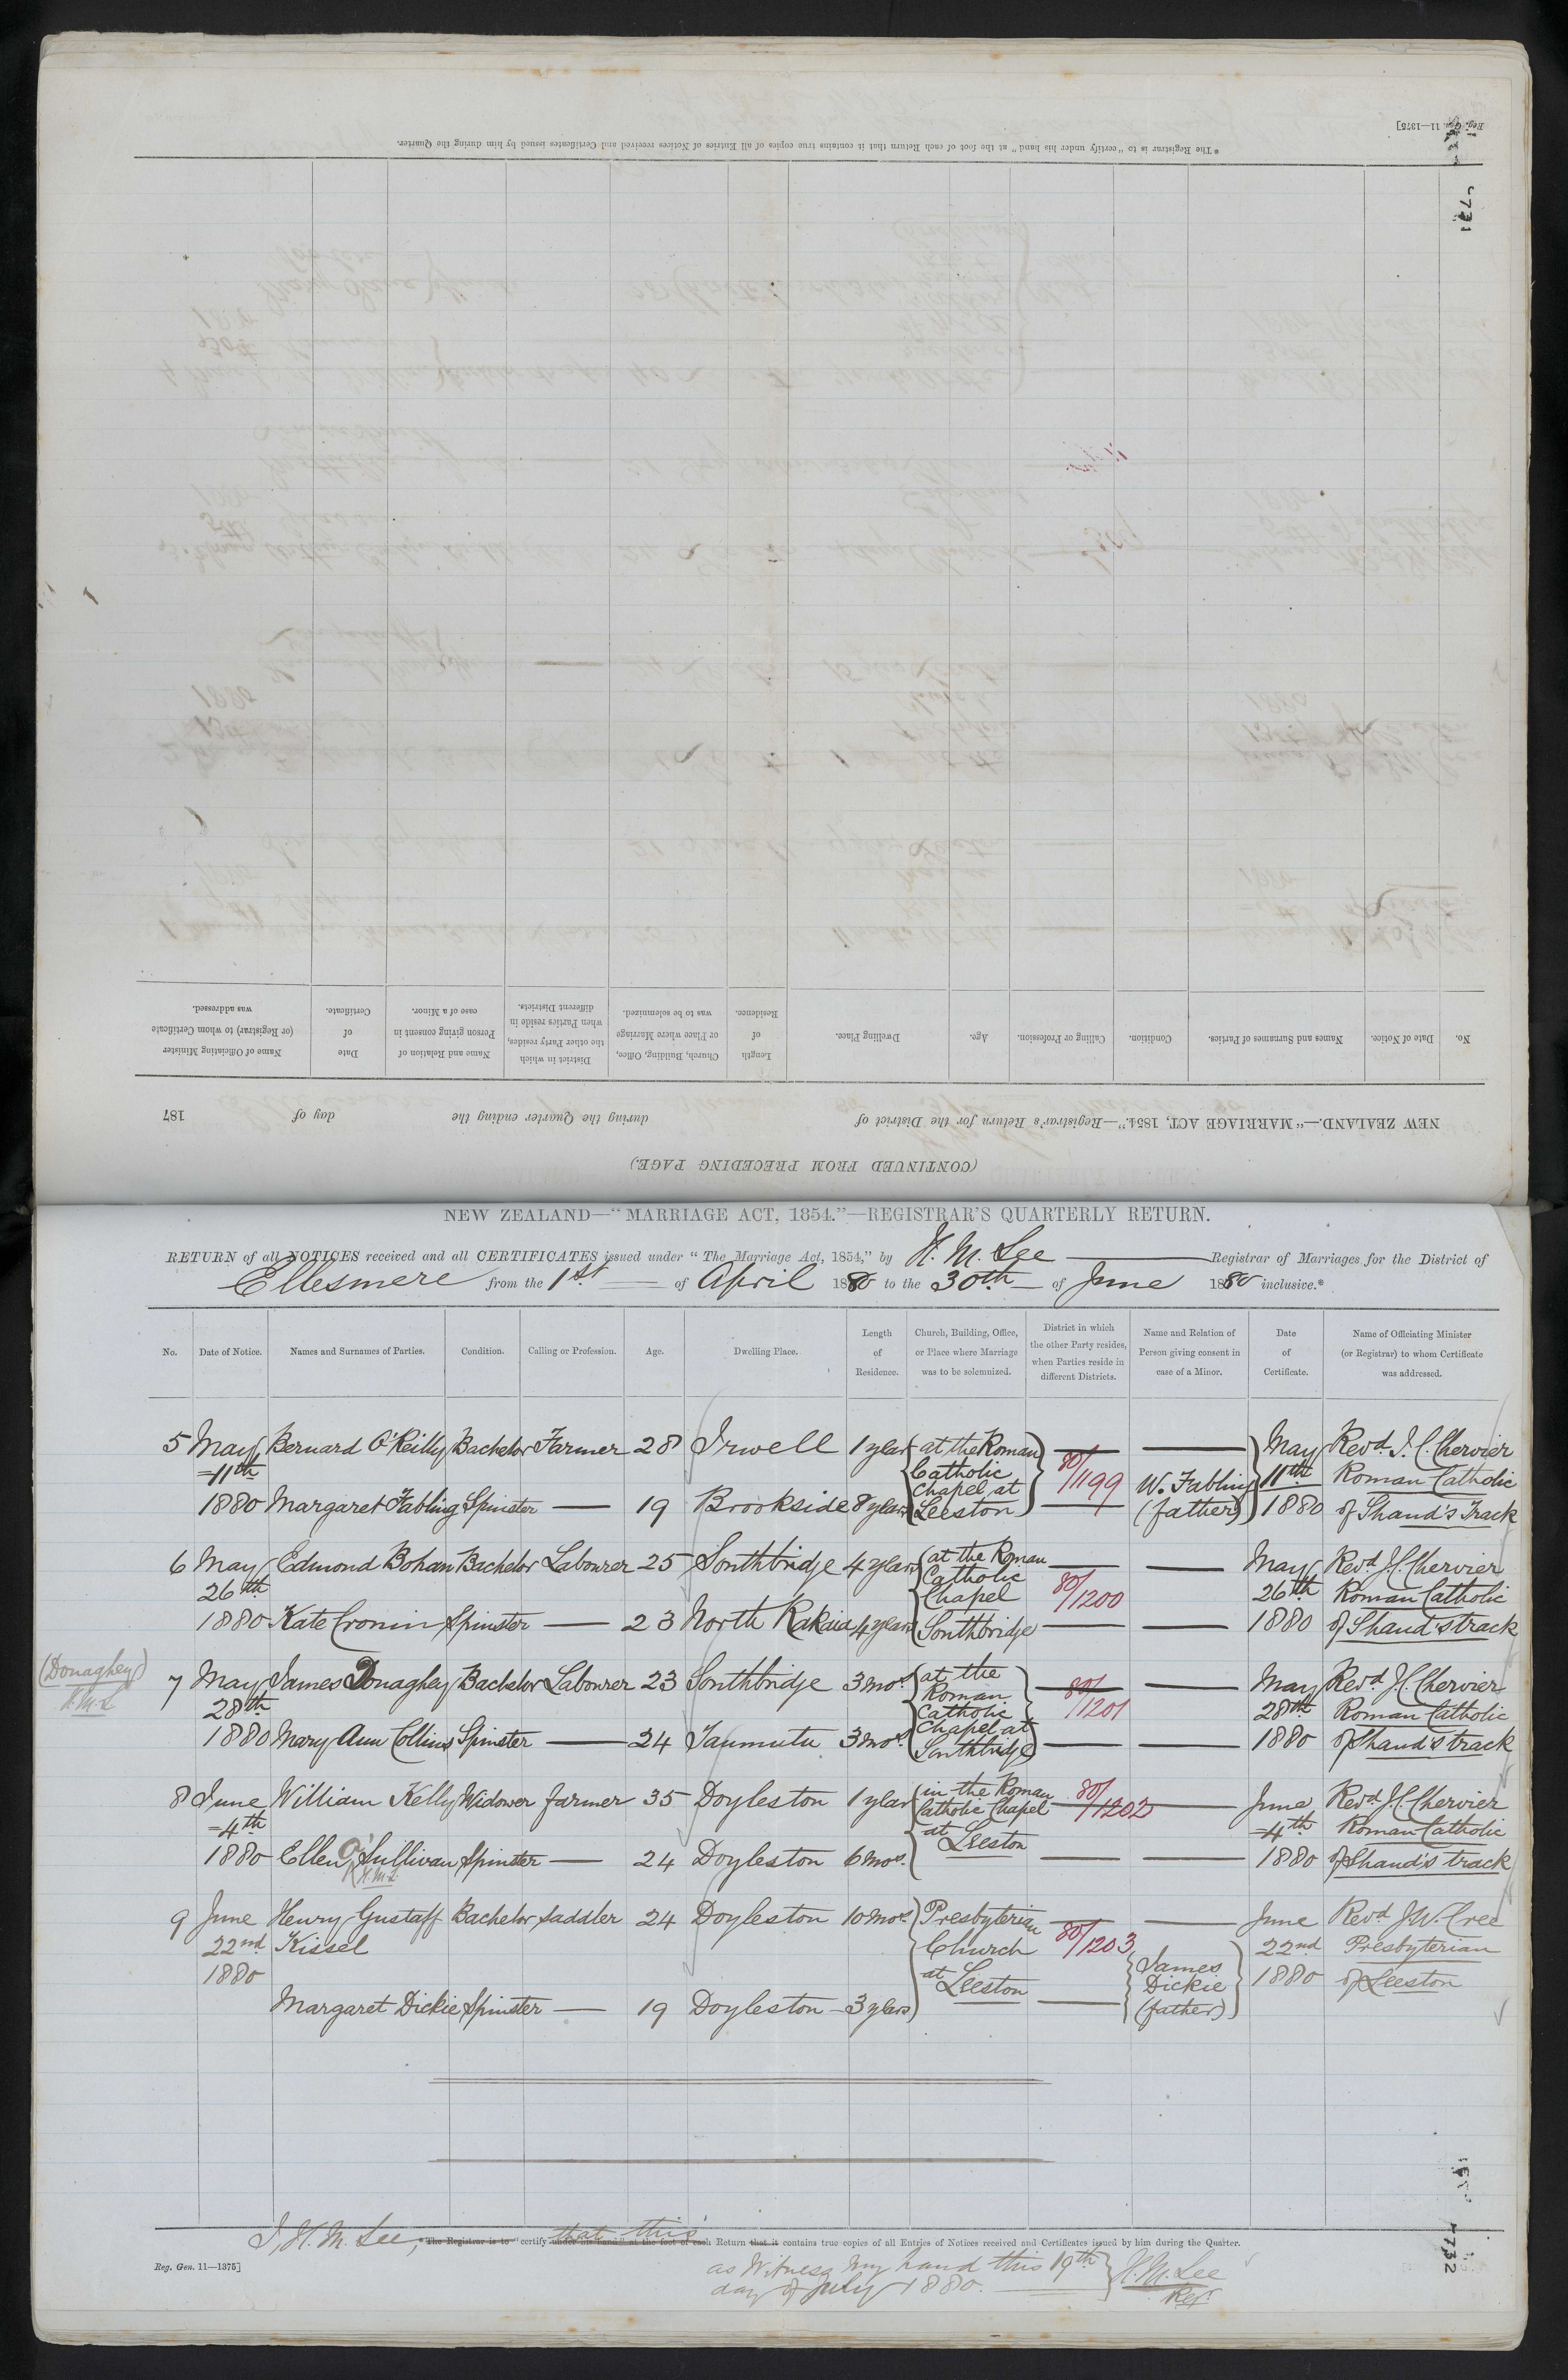 Reg. Gen. 11—1375]
* The Registrar is to "certify under his hand" at the foot of each Return that it contains true copies of all Entries of Notices received and Certificates issued by him during the Quarter.
731
(CONTINUED FROM PRECEDING PAGE.)
NEW ZEALAND.—"MARRIAGE ACT, 1854."—Registrar's Return for the District of during the Quarter ending the day of 187
No. Date of Notice. Names and Surnames of Parties. Condition. Calling or Profession. Age. Dwelling Place. Length of Residence. Church, Building, Office, or Place where Marriage was to be solemnized. District in which the other Party resides, when Parties reside in different Districts. Name and Relation of Person giving consent in case of a Minor. Date of Certificate. Name of Officiating Minister (or Registrar) to whom Certificate was addressed.
NEW ZEALAND—"MARRIAGE ACT, 1854."—REGISTRAR'S QUARTERLY RETURN.
RETURN of all NOTICES received and all CERTIFICATES issued under "The Marriage Act, 1854," by H. M. Lee Registrar of Marriages for the District of
Ellesmere from the 1st of April 1880 to the 30th of June 1880 inclusive.*
No. Date of Notice. Names and Surnames of Parties. Condition. Calling or Profession. Age. Dwelling Place. Length of Residence. Church, Building, Office, or Place where Marriage was to be solemnized. District in which the other Party resides, when Parties reside in different Districts. Name and Relation of Person giving consent in case of a Minor. Date of Certificate. Name of Officiating Minister (or Registrar) to whom Certificate was addressed.
5 May Bernard O'Reilly Bachelor Farmer 28 Irwell 1 year at the Roman — — May Revd. J. C. Chervier
11th Catholic 80/1199 11th Roman Catholic
1880 Margaret Fabling Spinster — 19 Brookside 8 years Chapel at Leeston — W. Fabling (father) 1880 of Shand's Track
6 May Edmond Bohan Bachelor Labourer 25 Southbridge 4 years at the Roman — — May Revd. J. C. Chervier
26th Catholic Chapel 80/1200 26th Roman Catholic
1880 Kate Cronin Spinster — 23 North Rakaia 4 years Southbridge — — 1880 of Shand's track
(Donaghey)
H.M.L
7 May James Donaghey Bachelor Labourer 23 Southbridge 3 mos. at the — — May Revd J. C. Chervier
28th Roman Catholic 80/1201 28th Roman Catholic
1880 Mary Ann Collins Spinster — 24 Taumutu 3 mos. Chapel at Southbridge — — 1880 of Shand's track
8 June William Kelly Widower farmer 35 Doyleston 1 year in the Roman 80/1202 — June Revd. J. C. Chervier
4th Catholic Chapel 4th Roman Catholic
1880 Ellen O'Sullivan Spinster — 24 Doyleston 6 mos. at Leeston — — 1880 of Shand's track
H.M.L
9 June Henry Gustaff Bachelor Saddler 24 Doyleston 10 mos. Presbyterian — — June Revd J. W. Cree
22nd Kissel Church 80/1203 22nd Presbyterian
1880 at Leeston James Dickie (father) 1880 of Leeston
Margaret Dickie Spinster — 19 Doyleston 3 years —
I, H. M. Lee, * The Registrar is to "certify under his hand" at the foot of each that this Return that it contains true copies of all Entries of Notices received and Certificates issued by him during the Quarter.
Reg. Gen. 11—1375]
as Witness my hand this 19th
day of July 1880.
H. M. Lee
Regr.
732